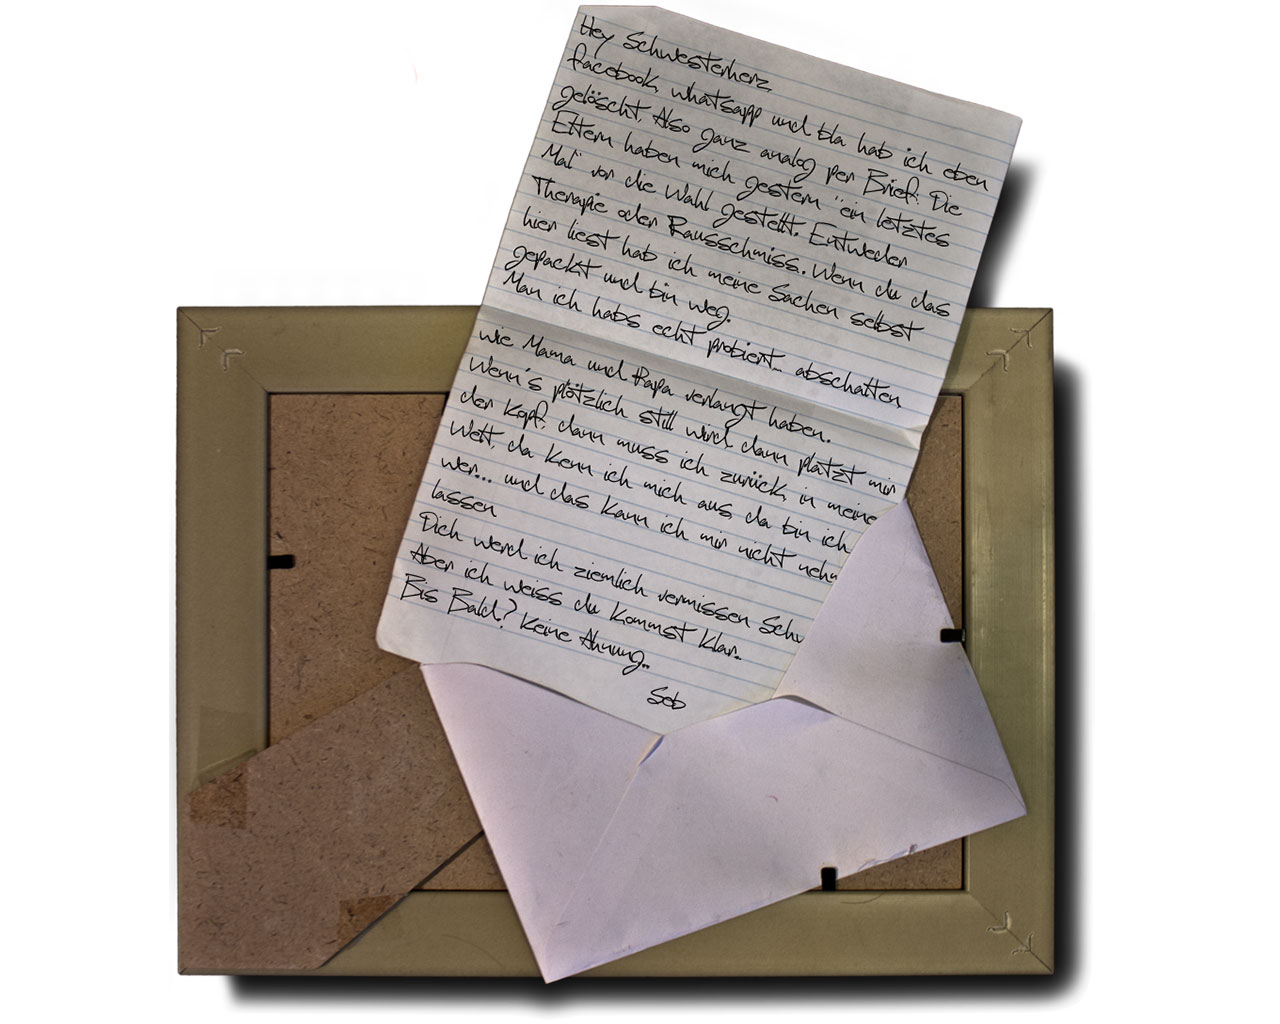 Hey Schwesterherz
facebook, whatsapp und bla hab ich eben
gelöscht. Also ganz analog per Brief: Die
Eltern haben mich gestern "ein letztes
Mal" vor die Wahl gestellt. Entweder
Therapie oder Rausschmiss. Wenn du das
hier liest hab ich meine Sachen selbst
gepackt und bin weg.
Man ich habs echt probiert... abschalten,
wie Mama und Papa verlangt haben.
Wenn's plötzlich still wird dann platzt mir
der Kopf, dann muss ich zurück, in meine
Welt, da kenn ich mich aus, da bin ich
wer... und das kann ich mir nicht nehm
lassen
Dich werd ich ziemlich vermissen Schw
Aber ich weiss du kommst klar..
Bis Bald? Keine Ahnung..
Seb